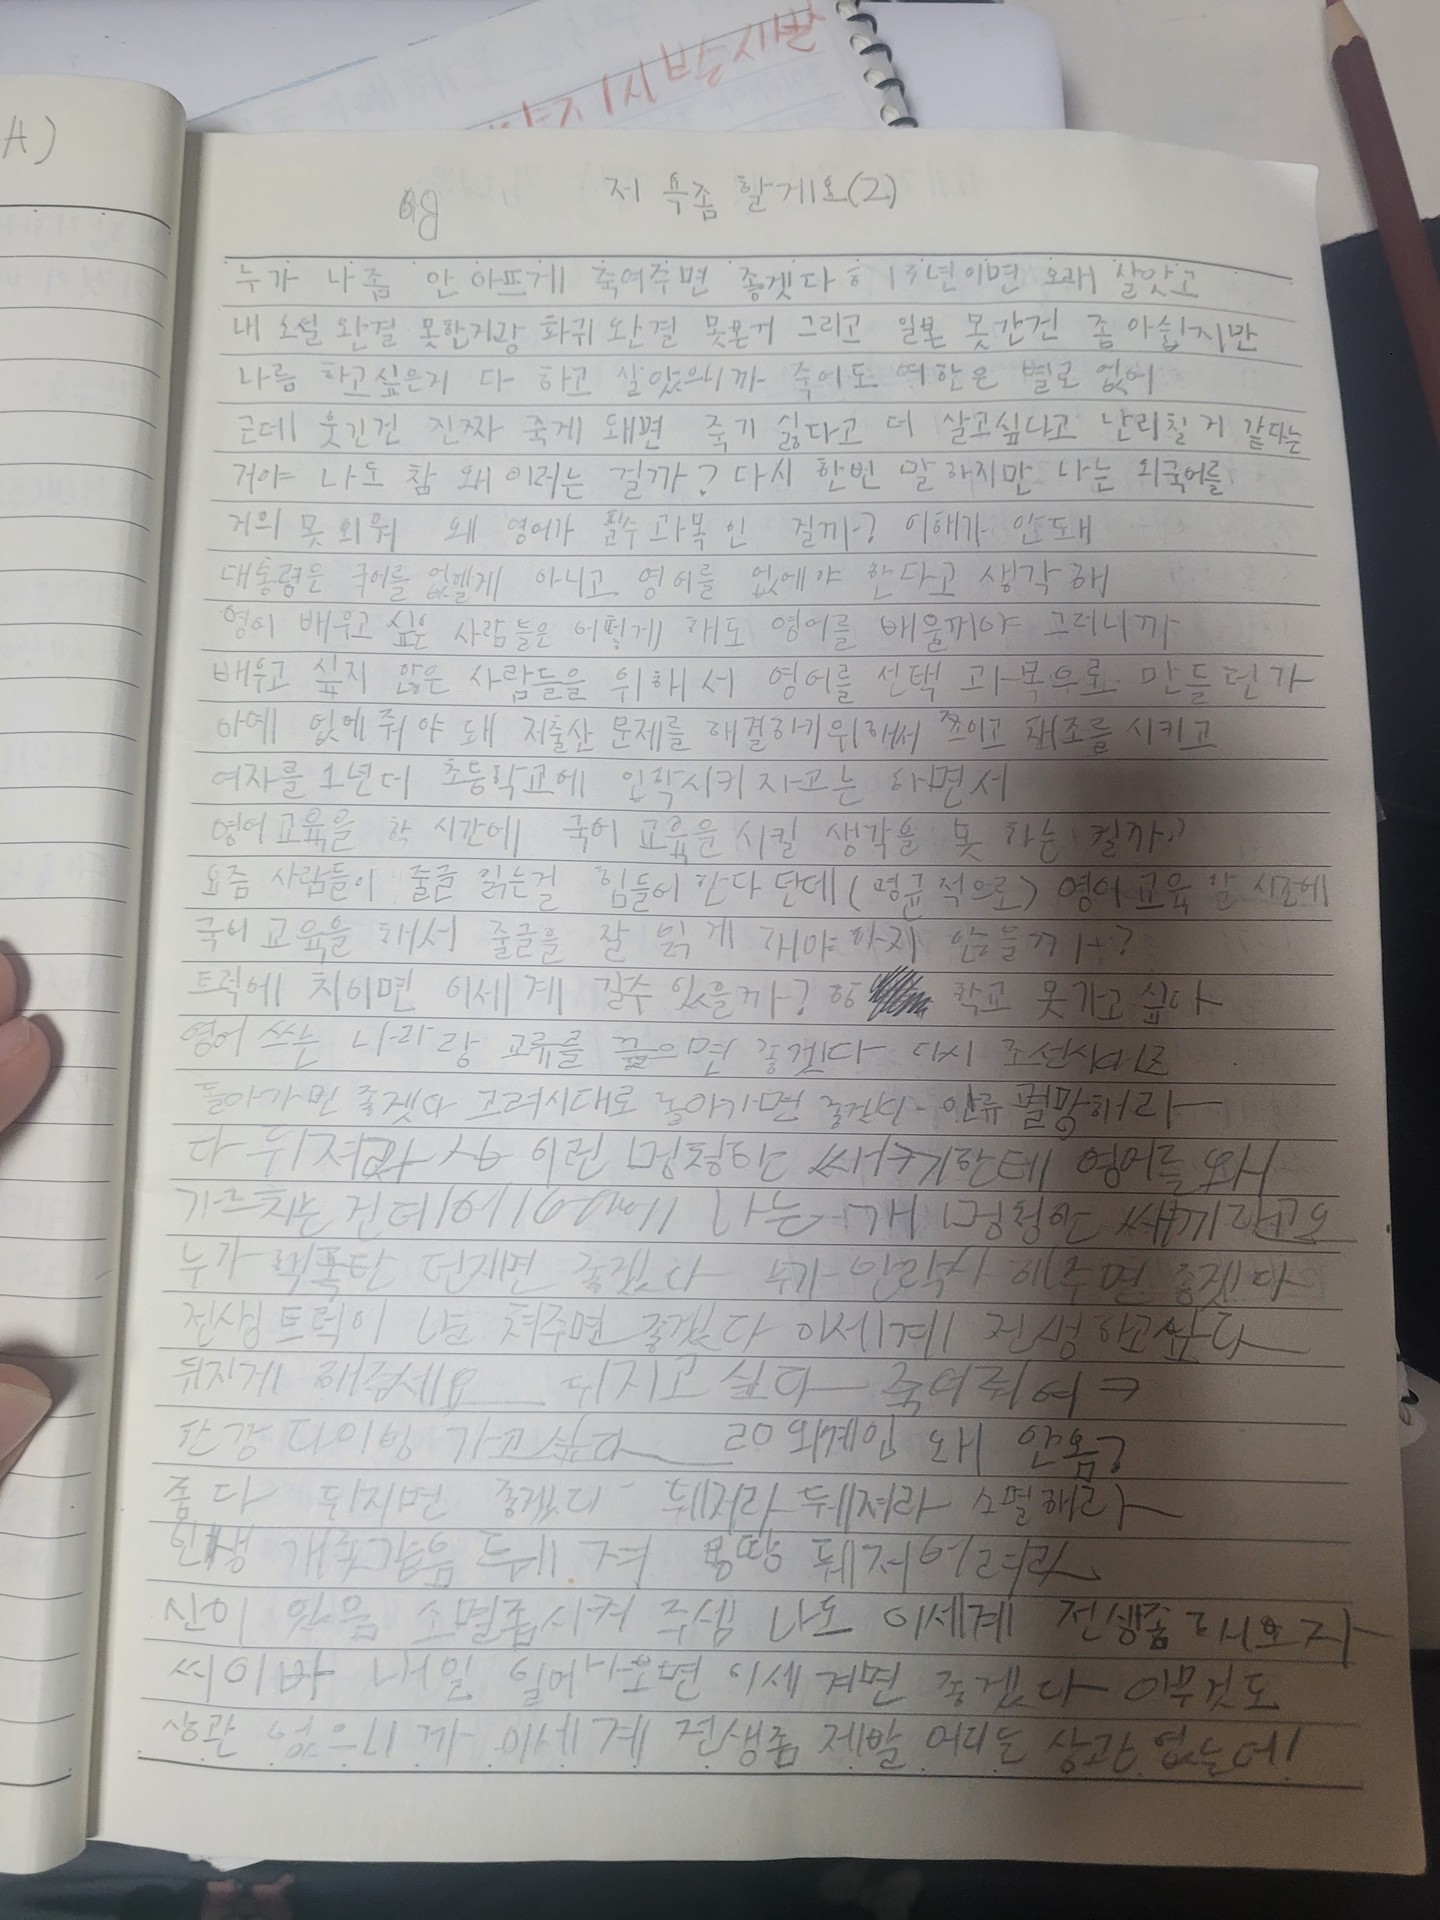 저 욕좀 할게요(2)
누가 나 좀 안 아프게 죽여주면 좋겟다 ㅎ 13년이면 오래 살앗고
내 소설 완결 못한거랑 화귀 완결 못본거 그리고 일본 못간건 좀 아쉽지만
나름 하고싶은거 다 하고 살았으니까 죽어도 여한은 별로 없어
근데 웃긴건 진짜 죽게 돼면 죽기 싫다고 더 살고싶다고 난리칠 거 같다는
거야 나도 참 왜 이러는 걸까? 다시 한번 말하지만 나는 외국어를
거의 못 외워 왜 영어가 필수과목 인 걸까? 이해가 안돼
대통령은 국어를 없앨게 아니고 영어를 없에야 한다고 생각해
영어 배우고 싶은 사람들은 어떻게 해도 영어를 배울꺼야 그러니까
배우고 싶지 않은 사람들을 위해서 영어를 선택 과목으로 만들던가
아예 없에줘야 돼 저출산 문제를 해결하기위해서 쪼이고 체조를 시키고
여자를 1년 더 초등학교에 입학시키자고는 하면서
영어교육을 할 시간에 국어 교육을 시킬 생각을 못 하는 걸까?
요즘 사람들이 줄글 읽는걸 힘들어 한다 던데 (평균적으로) 영어교육 할 시간에
국어 교육을 해서 줄글을 잘 읽게 해야하지 않을까?
트럭에 치이면 이세계 갈수 있을까? 학교 못가고 싶다
영어 쓰는 나라랑 교류를 끊으면 좋겠다 다시 조선시대로
돌아가면 좋겟다 고려시대로 돌아가면 인류 멸망해라
다 뒤져라 이런 멍청한 쌔끼한테 영어를 왜
가르치는 건데 나는 개 멍청한 쌔끼라고요
누가 핵폭탄 던져면 좋겠다 누가 안락사 해주면 좋겠다
전생트럭이 나를 쳐주면 좋겠다 이세계 전생하고싶다
뒤지게 해주세요 뒤지고 싶다 죽여줘여ㅋ
한강 다이빙 가고싶다 외계인 왜 안옴?
좀 다 뒤지면 좋겠다 뒈저라 뒈져라 소멸해라
인생 개좆같음 뒈져
신이 있음 소멸좀시켜 주셈 나도 이세계 전생좀
씨이바 내일 일어나보면 이세계면 좋겠다 아무것도
상관 없으니까 이세계 전생좀 제발 어디든 상관 없는데!